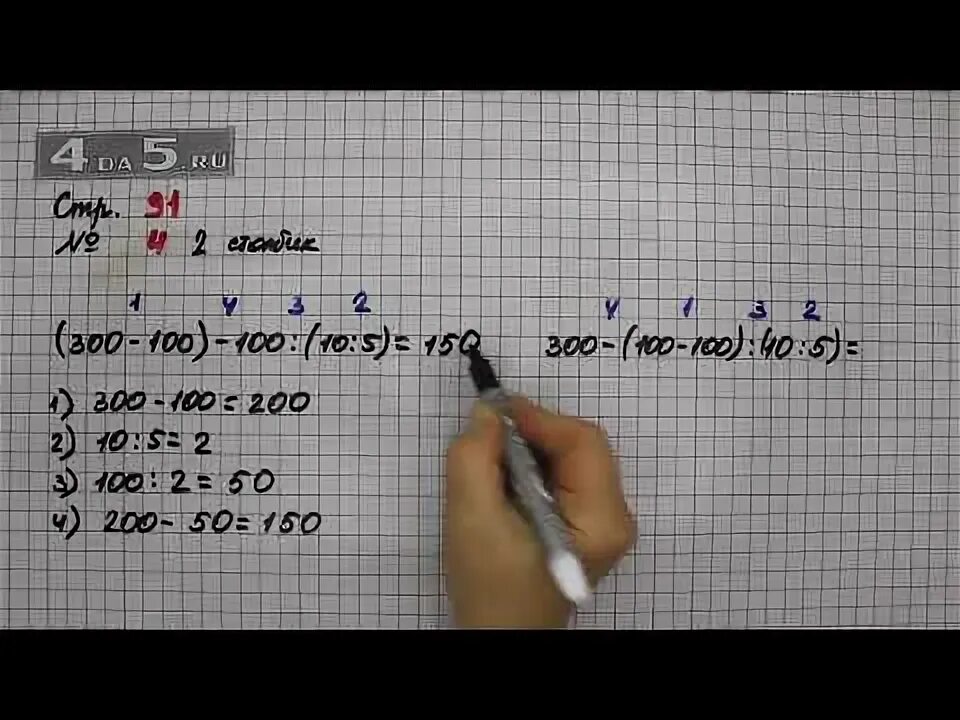 4 DA 5.RU
Стр. 91
№ 4 2 столбик
1 4 3 2
(300-100)-100:(10:5)=150
4 1 3 2
300-(100-100):(10:5)=
1) 300-100=200
2) 10:5=2
3) 100:2=50
4) 200-50=150